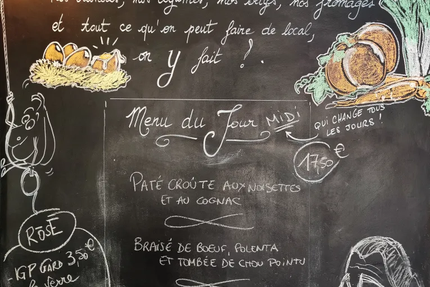 nos légumes, nos œufs, nos fromages
et tout ce qu'on peut faire de local,
on y fait !
Menu du Jour MIDI
QUI CHANGE TOUS
LES JOURS !
17,50 €
PATÉ CROÛTE AUX NOISETTES
ET AU COGNAC
BRAISÉ DE BOEUF, POLENTA
ET TOMBÉE DE CHOU POINTU
ROSÉ
- IGP GARD 3,50 €
le verre